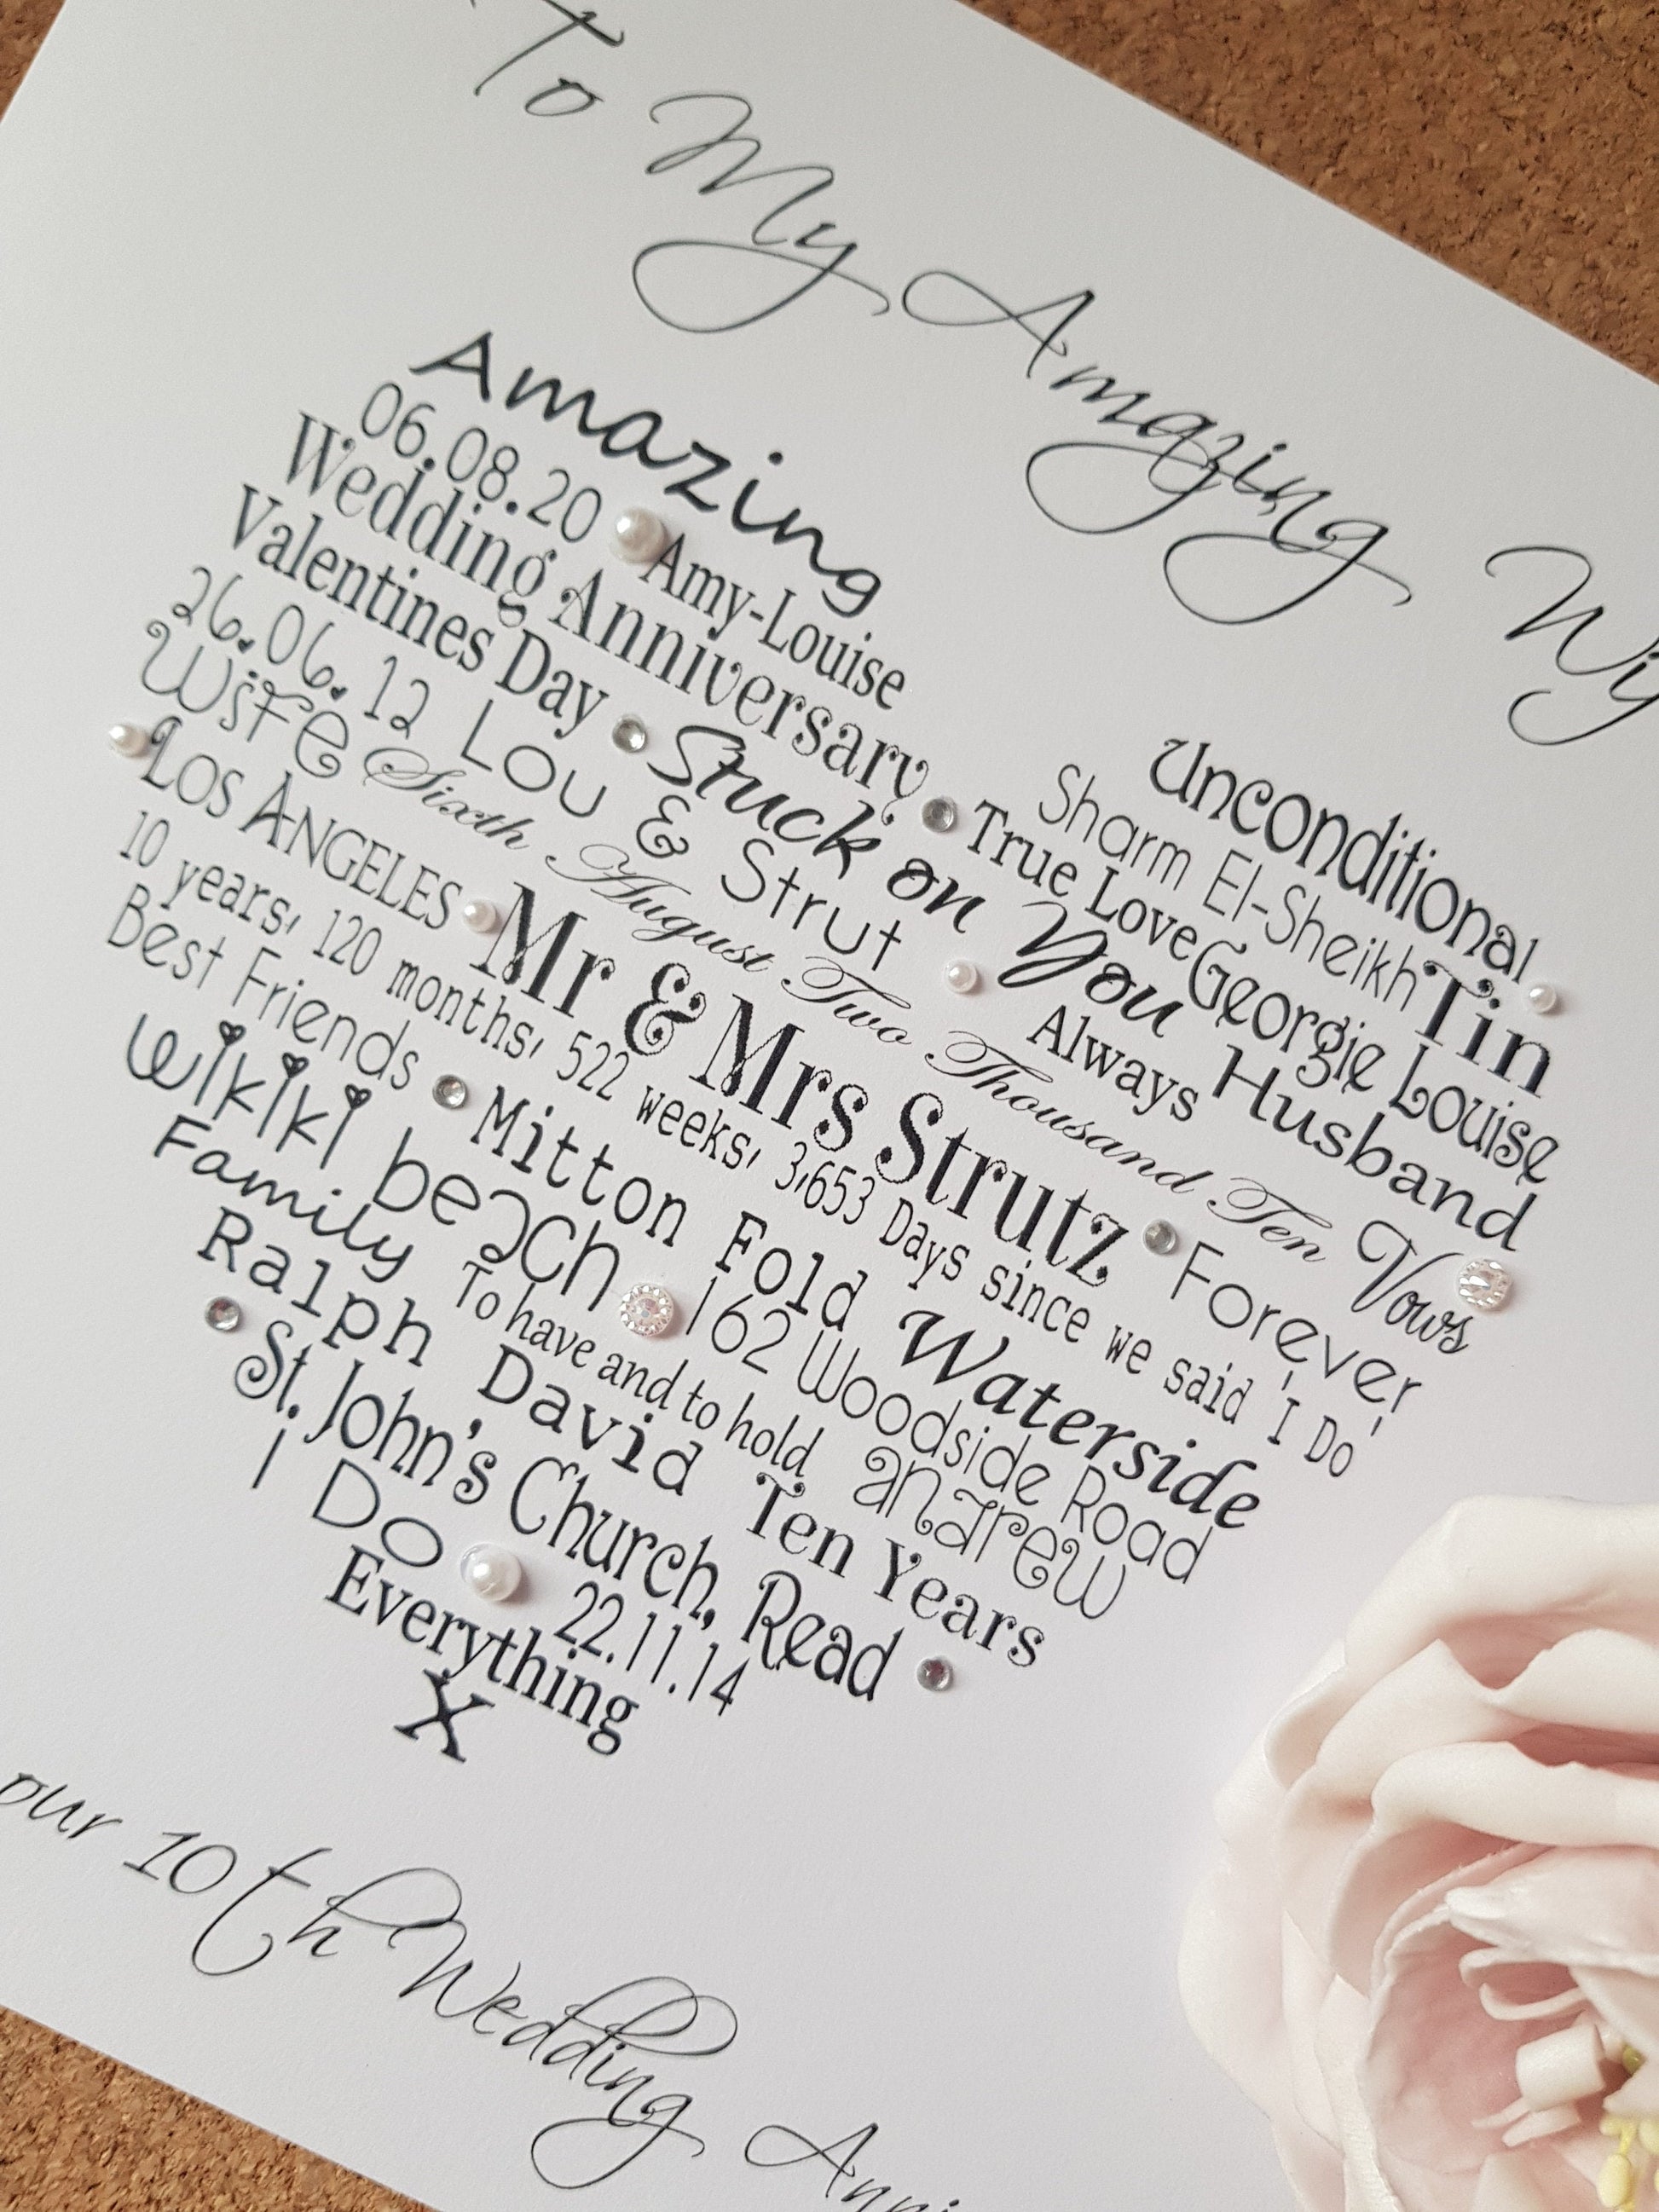 To My Amazing Wi
Amazing
Unconditional
06.08.20 Amy-Louise
Sharm El-Sheikh Tin
Wedding Anniversary True Love Georgie Louise
Valentines Day Stuck on You Husband
26.06.12 Lou & Strut Always
Wife Sixth August Two Thousand Ten Vows
Los Angeles Mr & Mrs Strutz Forever
10 years, 120 months, 522 weeks, 3,653 Days since we said 'I Do'
Best Friends Mitton Fold Waterside
Wikiki beach 162 Woodside Road
Family To have and to hold andrew
Ralph David Ten Years
St. John's Church, Read
I Do 22.11.14
Everything
X
our 10th Wedding Anni